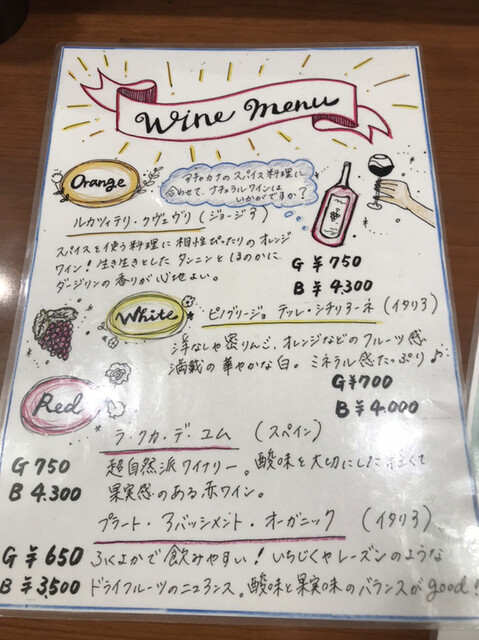 Wine Menu
アチャカナのスパイス料理に
合わせて、ナチュラルワインは
いかがですか?
Orange
ルカツィテリ・クヴェヴリ(ジョージア)
スパイスを使う料理に相性ぴったりのオレンジ
ワイン!生き生きとしたタンニンとほのかに
ダージリンの香りが心地よい。
G ¥750
B ¥4.300
White
ピノグリージョ テッレ・シチリアーネ(イタリア)
洋なしや蜜りんご、オレンジなどのフルーツ感
満載の華やかな白。ミネラル感たっぷり♪
G ¥700
B ¥4.000
Red
ラ・クカ・デ・ユム(スペイン)
G 750
B 4.300
超自然派ワイナリー。酸味を大切にした軽くて
果実感のある赤ワイン。
プラート・アパッシメント・オーガニック(イタリア)
G ¥650
B ¥3,500
ふくよかで飲みやすい!いちじくやレーズンのような
ドライフルーツのニュアンス。酸味と果実味のバランスがgood!